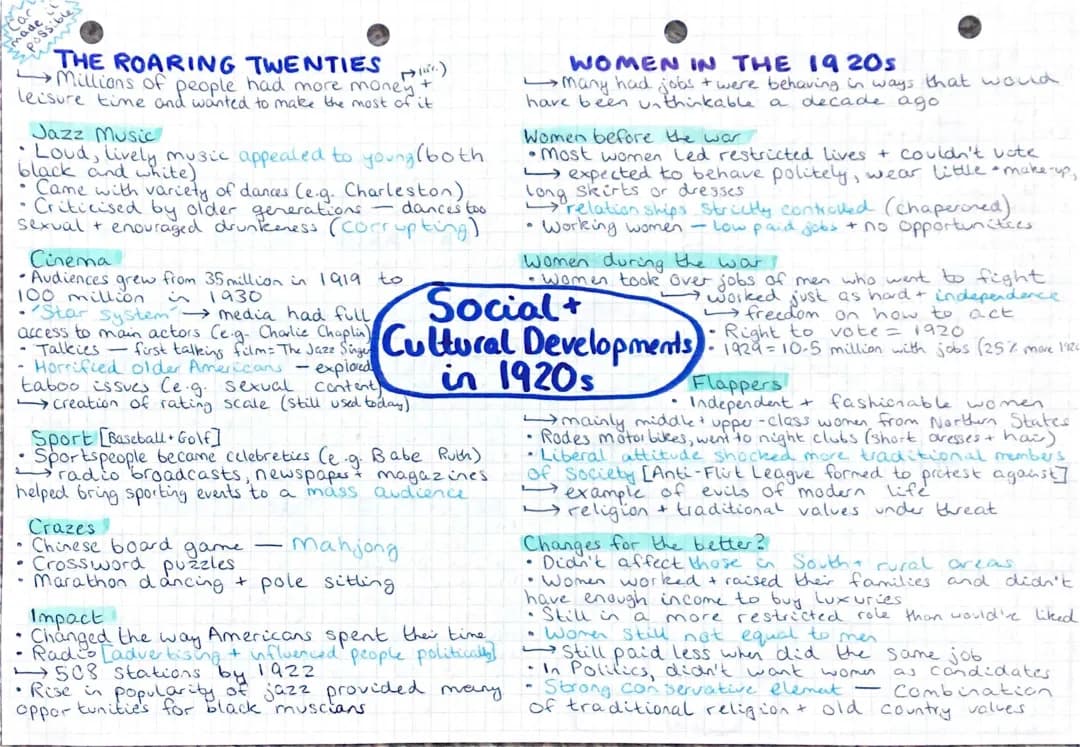 Car made it possible
THE ROARING TWENTIES
↳ Millions of people had more money +
leisure time and wanted to make the most of it
Jazz Music
• Loud, lively music appealed to young (both
black and white)
• Came with variety of dances (e.g. Charleston)
• Criticised by older generations — dances too
sexual + enouraged drunkeness (corrupting)
Cinema
• Audiences grew from 35 million in 1919 to
100 million in 1930
• "Star system" → media had full
access to main actors (e.g. Charlie Chaplin)
• Talkies — first talking film = The Jazz Singer
• Horrified older Americans — explored
taboo issues (e.g. sexual content)
↳ creation of rating scale (still used today)
Sport [Baseball + Golf]
• Sportspeople became celebreties (e.g. Babe Ruth)
↳ radio broadcasts, newspaper + magazines
helped bring sporting events to a mass audience
Crazes
• Chinese board game — Mahjong
• Crossword puzzles
• Marathon dancing + pole sitting
Impact
• Changed the way Americans spent their time
• Radio [advertising + influenced people politically]
↳ 508 stations by 1922
• Rise in popularity of jazz provided many
opportunities for black muscians
Social +
Cultural Developments
in 1920s
WOMEN IN THE 1920s
↳ Many had jobs + were behaving in ways that would
have been unthinkable a decade ago
Women before the war
• Most women led restricted lives + couldn't vote
↳ expected to behave politely, wear little make-up,
long skirts or dresses
↳ relationships strictly controlled (chaperoned)
• Working women — low paid jobs + no opportunities
Women during the war
• Women took over jobs of men who went to fight
↳ worked just as hard + independence
↳ freedom on how to act
• Right to vote = 1920
• 1929 = 10.5 million with jobs (25% more
Flappers
• Independent + fashionable women
↳ mainly middle + upper-class women from Northern States
• Rodes motorbikes, went to night clubs (short dresses + hair)
• Liberal attitude shocked more traditional members
of society [Anti-Flirt League formed to protest against]
↳ example of evils of modern life
↳ religion + traditional values under threat
Changes for the better?
• Didn't affect those in South + rural areas
• Women worked + raised their families and didn't
have enough income to buy luxuries
• Still in a more restricted role than would've liked
• Women still not equal to men
↳ Still paid less when did the same job
• In Politics, didn't want women as candidates
• Strong conservative element — Combination
of traditional religion + old country values